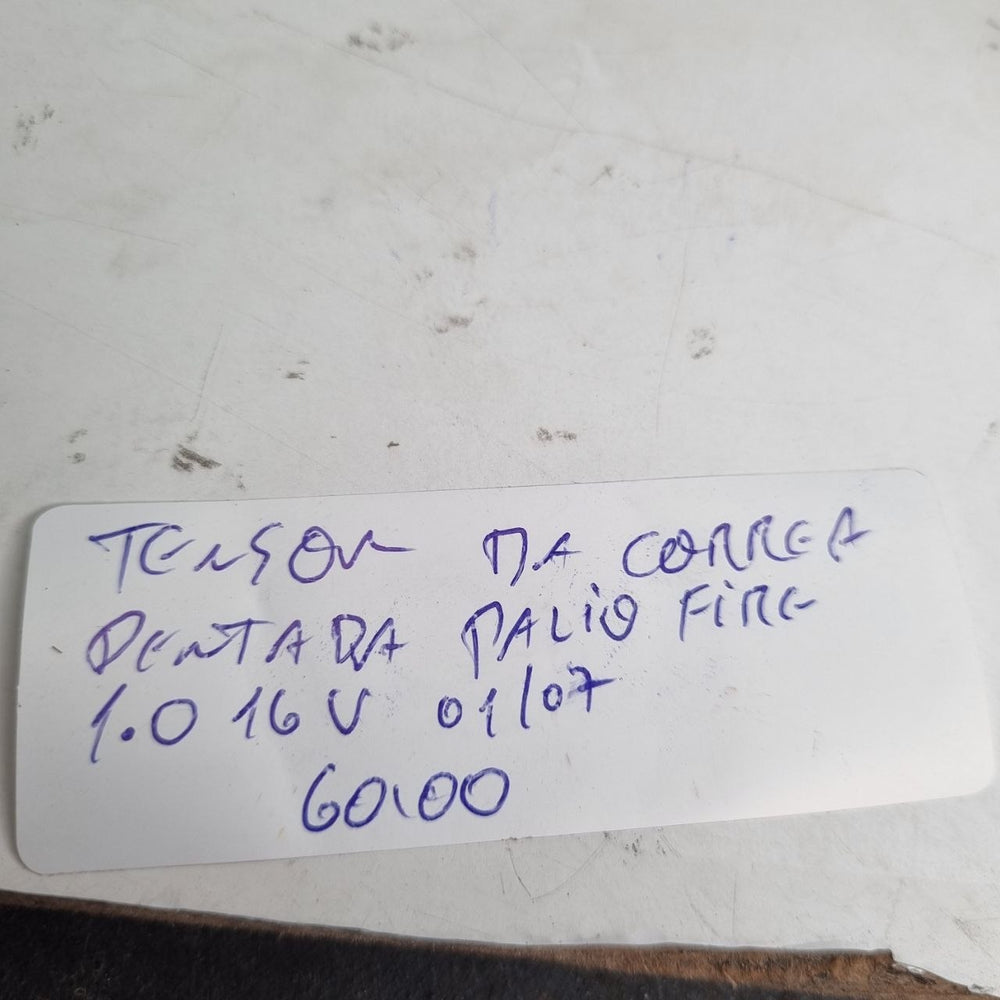 TENSOR DA CORREA
DENTADA PALIO FIRE
1.0 16V 01/07
60,00